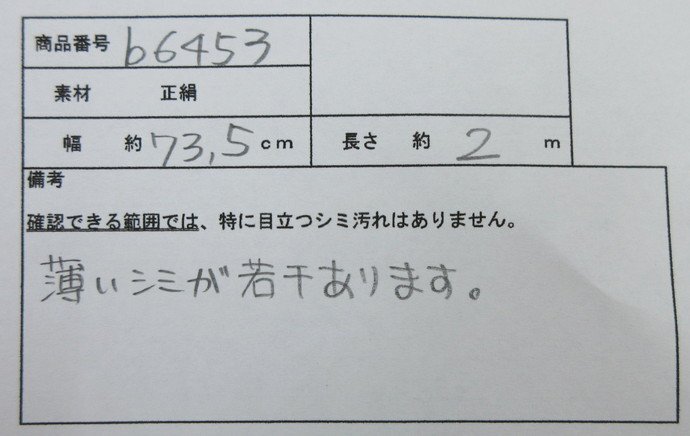 商品番号 b6453
素材 正絹
幅 約 73,5 cm 長さ 約 2 m
備考
確認できる範囲では、特に目立つシミ汚れはありません。
薄いシミが若干あります。